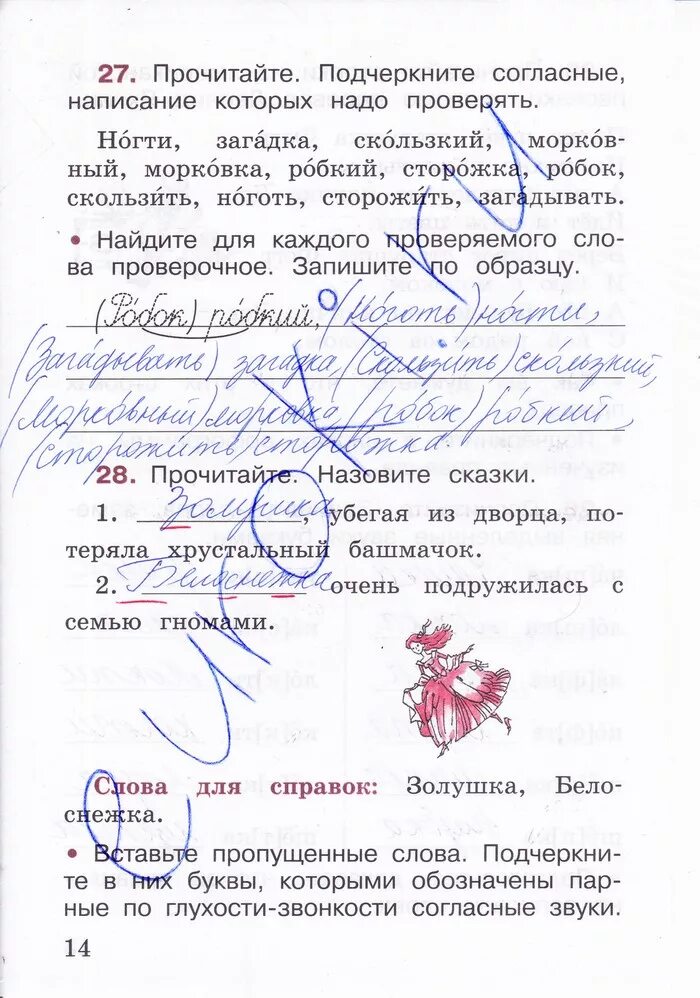 27. Прочитайте. Подчеркните согласные,
написание которых надо проверять.
Но́гти, зага́дка, ско́льзкий,морко́в-
ный, морко́вка, ро́бкий, сторо́жка, ро́бок,
скользи́ть, но́готь, сторожи́ть, зага́дывать.
• Найдите для каждого проверяемого сло-
ва проверочное. Запишите по образцу.
(Ро́бок) ро́бкий, (Но́готь) но́гти,
(Зага́дывать) зага́дка, (Скользи́ть) скользкий,
(Морко́вный) морковка (робок) ро́бкий
(сторожить) сторо́жка
28. Прочитайте. Назовите сказки.
1. Золушка, убегая из дворца, по-
теряла хрустальный башмачок.
2. Белоснежка очень подружилась с
семью гномами.
Слова для справок: Золушка, Бело-
снежка.
• Вставьте пропущенные слова. Подчеркни-
те в них буквы, которыми обозначены пар-
ные по глухости-звонкости согласные звуки.
14